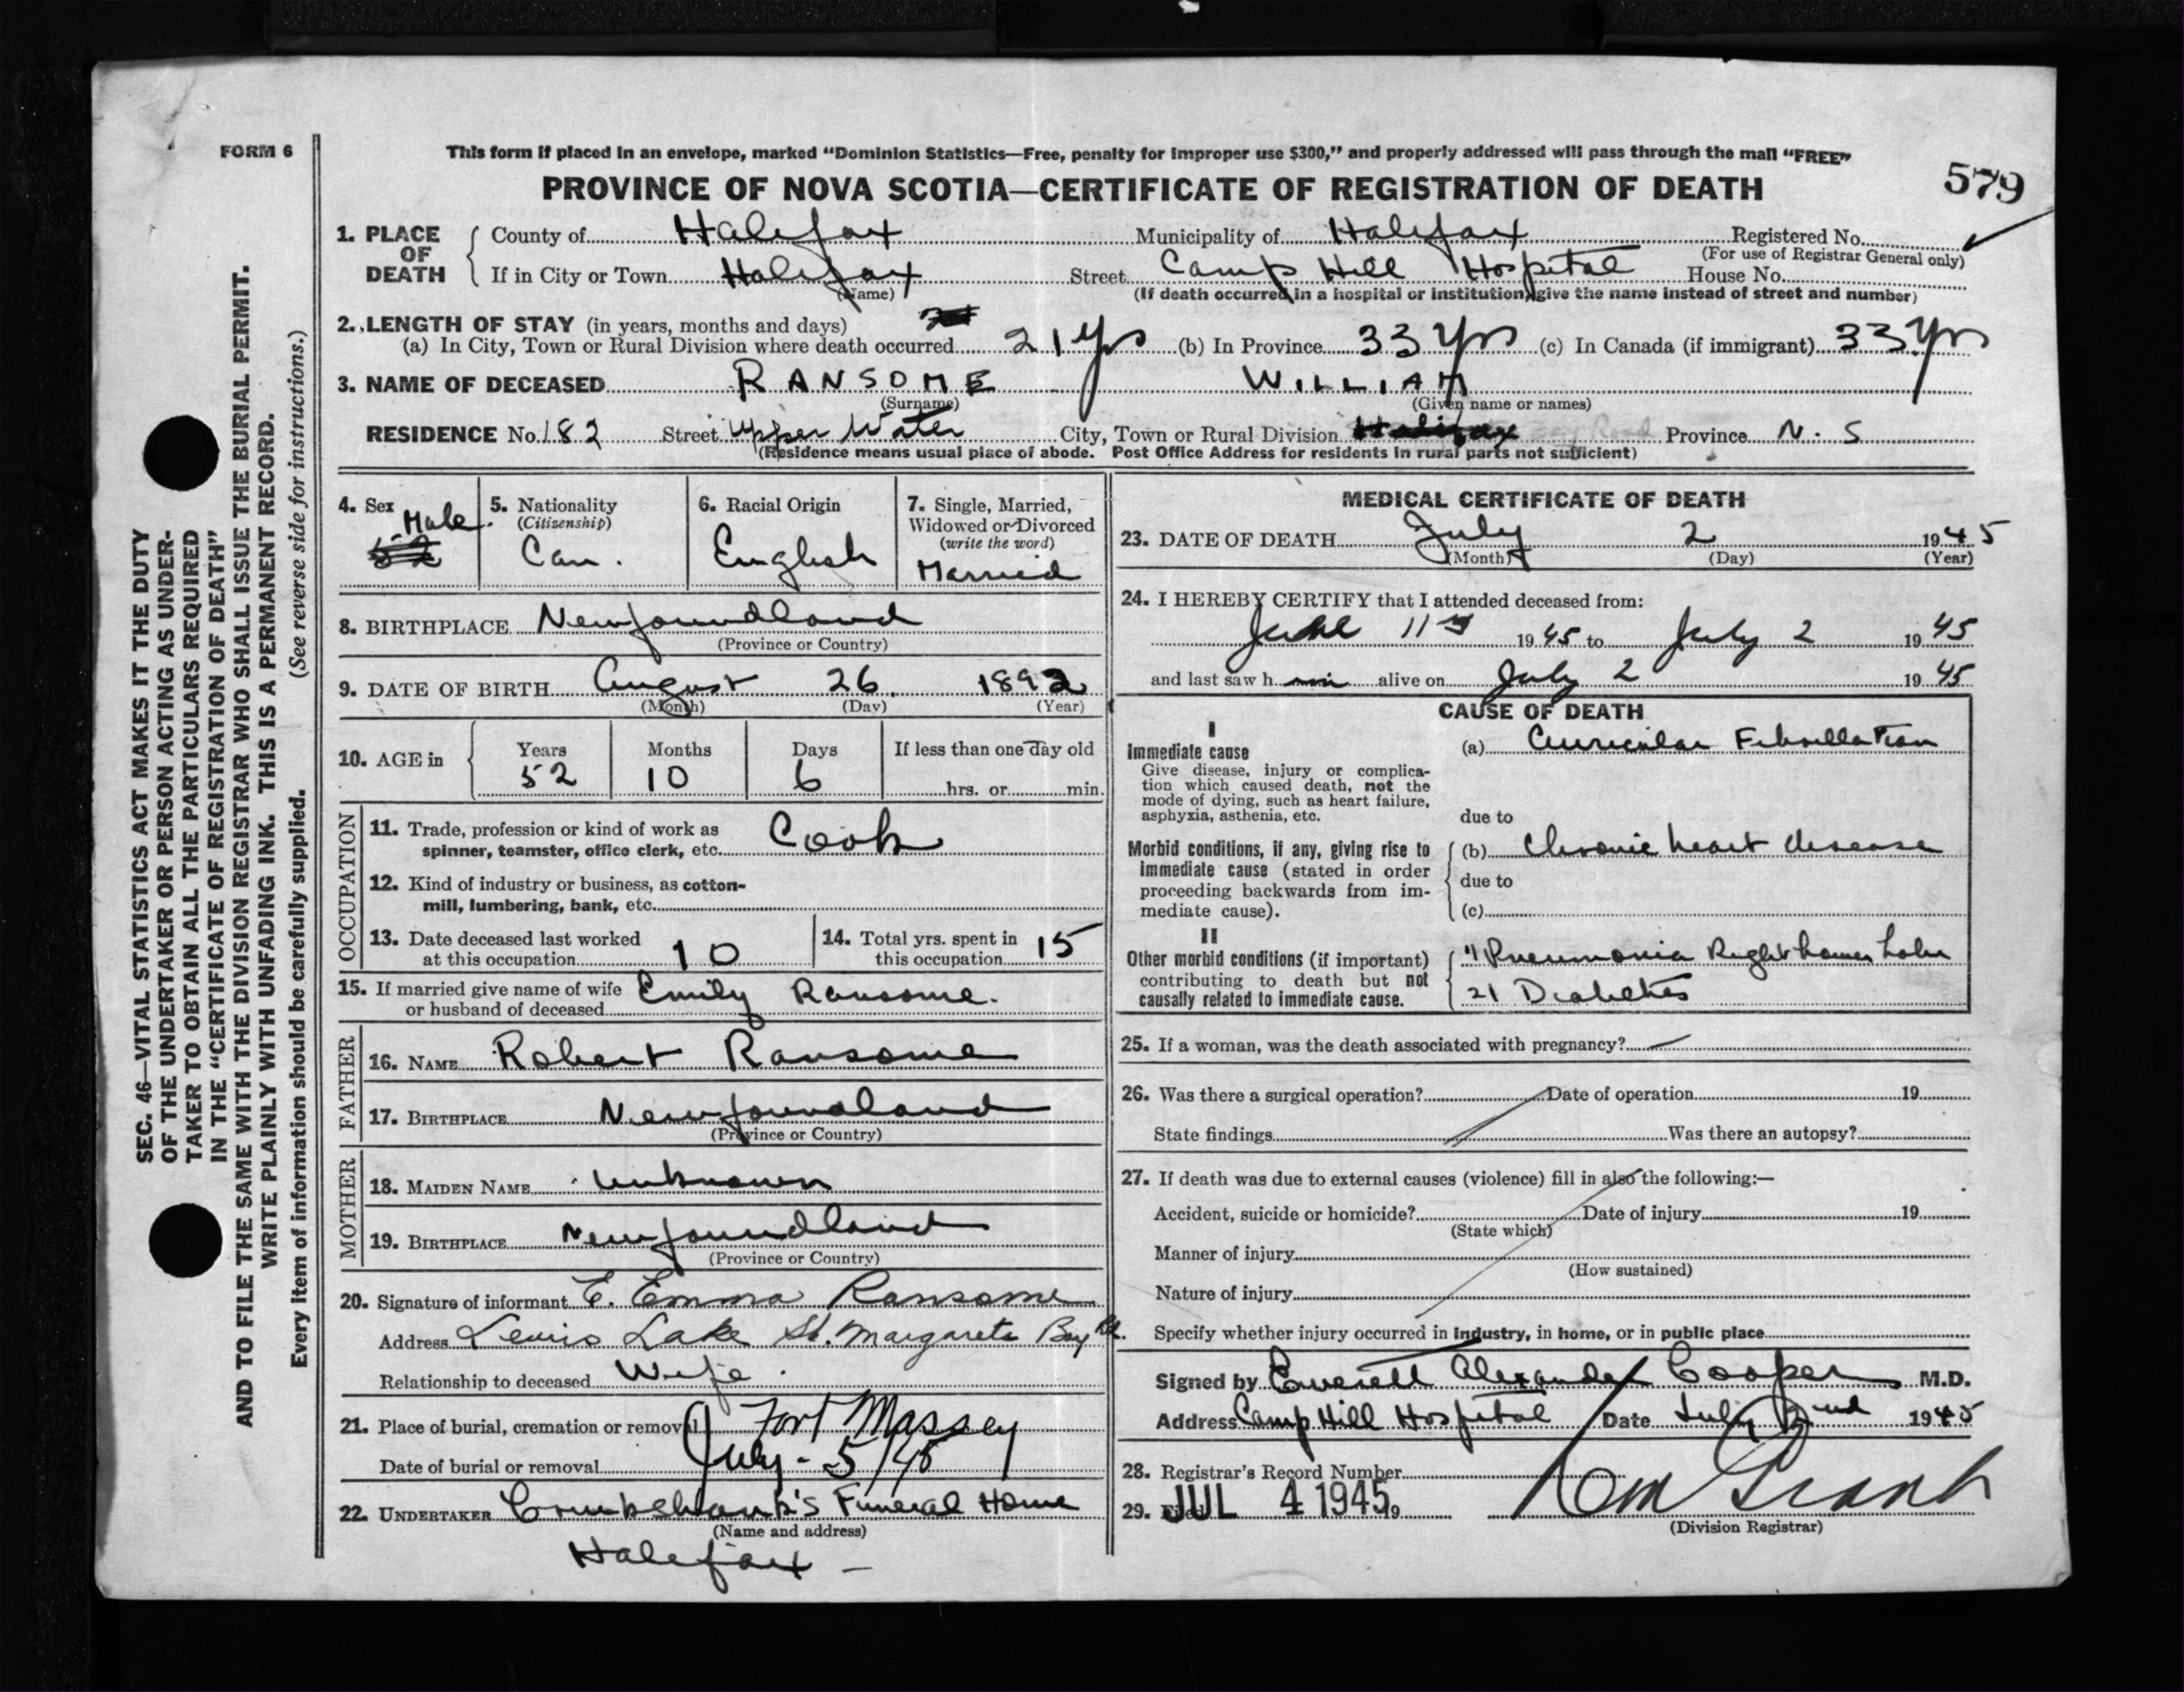 FORM 6
This form if placed in an envelope, marked “Dominion Statistics—Free, penalty for improper use $300,” and properly addressed will pass through the mail “FREE”
579
PROVINCE OF NOVA SCOTIA—CERTIFICATE OF REGISTRATION OF DEATH
1. PLACE OF DEATH
County of Halifax Municipality of Halifax Registered No.
(For use of Registrar General only)
If in City or Town Halifax Street Camp Hill Hospital House No.
(Name) (If death occurred in a hospital or institution, give the name instead of street and number)
2. LENGTH OF STAY (in years, months and days)
(a) In City, Town or Rural Division where death occurred 21 yrs (b) In Province 33 yrs (c) In Canada (if immigrant) 33 yrs
3. NAME OF DECEASED RANSOME WILLIAM
(Surname) (Given name or names)
RESIDENCE No. 182 Street Upper Water City, Town or Rural Division Halifax Bay Road Province N. S
(Residence means usual place of abode. Post Office Address for residents in rural parts not sufficient)
4. Sex Male. 52
5. Nationality
(Citizenship)
Can.
6. Racial Origin
English
7. Single, Married,
Widowed or Divorced
(write the word)
Married
8. BIRTHPLACE Newfoundland
(Province or Country)
9. DATE OF BIRTH August 26. 1892
(Month) (Day) (Year)
10. AGE in Years Months Days If less than one day old
52 10 6 hrs. or min.
OCCUPATION
11. Trade, profession or kind of work as
spinner, teamster, office clerk, etc. Cook
12. Kind of industry or business, as cotton-
mill, lumbering, bank, etc.
13. Date deceased last worked
at this occupation 10
14. Total yrs. spent in
this occupation 15
15. If married give name of wife
or husband of deceased Emily Ransome.
FATHER
16. NAME Robert Ransome
17. BIRTHPLACE Newfoundland
(Province or Country)
MOTHER
18. MAIDEN NAME Unknown
19. BIRTHPLACE Newfoundland
(Province or Country)
20. Signature of informant E. Emma Ransome
Address Lewis Lake St. Margarets Bay Rd.
Relationship to deceased Wife.
21. Place of burial, cremation or removal Fort Massey
Date of burial or removal July - 5/45
22. UNDERTAKER Cruikshank's Funeral Home
(Name and address)
Halifax —
MEDICAL CERTIFICATE OF DEATH
23. DATE OF DEATH July 2 1945
(Month) (Day) (Year)
24. I HEREBY CERTIFY that I attended deceased from:
June 11 1945 to July 2 1945
and last saw h im alive on July 2 1945
CAUSE OF DEATH
I
Immediate cause
Give disease, injury or complica-
tion which caused death, not the
mode of dying, such as heart failure,
asphyxia, asthenia, etc.
(a) Auricular Fibrillation
due to
Morbid conditions, if any, giving rise to
immediate cause (stated in order
proceeding backwards from im-
mediate cause).
(b) Chronic heart disease
due to
(c)
II
Other morbid conditions (if important)
contributing to death but not
causally related to immediate cause.
1) Pneumonia Right Lower Lobe
2) Diabetes
25. If a woman, was the death associated with pregnancy? —
26. Was there a surgical operation? Date of operation 19
State findings Was there an autopsy?
27. If death was due to external causes (violence) fill in also the following:—
Accident, suicide or homicide? Date of injury 19
(State which)
Manner of injury
(How sustained)
Nature of injury
Specify whether injury occurred in industry, in home, or in public place
Signed by Everett Alexander Cooper M.D.
Address Camp Hill Hospital Date July 2nd 1945
28. Registrar's Record Number
29. Filed JUL 4 1945 19
(Division Registrar)
SEC. 46—VITAL STATISTICS ACT MAKES IT THE DUTY
OF THE UNDERTAKER OR PERSON ACTING AS UNDER-
TAKER TO OBTAIN ALL THE PARTICULARS REQUIRED
IN THE “CERTIFICATE OF REGISTRATION OF DEATH”
AND TO FILE THE SAME WITH THE DIVISION REGISTRAR WHO SHALL ISSUE THE BURIAL PERMIT.
WRITE PLAINLY WITH UNFADING INK. THIS IS A PERMANENT RECORD.
Every item of information should be carefully supplied. (See reverse side for instructions.)